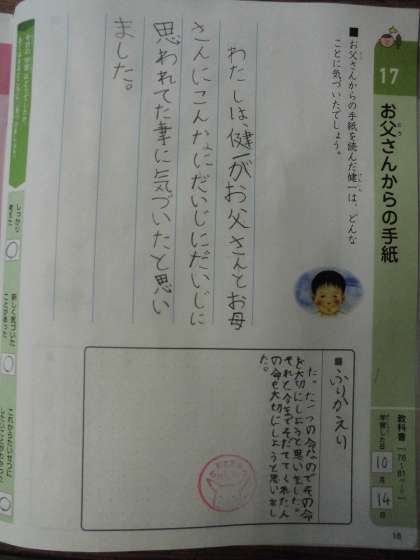 17
お父さんからの手紙
■お父さんからの手紙を読んだ健一は、どんな
ことに気づいたでしょう。
わたしは、健一がお父さんとお母
さんにこんなにだいじにだいじに
思われてた事に気づいたと思い
ました。
■ふりかえり
た。た一つの命なのでその命
を大切にしようと思いました。
それと今までそだててくれた人
の命も大切にしようと思いまし
た。
教科書
[76~81ページ]
学習した日
10月
14日
しっかり
考えた
新しく気づいた
ことがあった
これからたいせつに
したいことがわかった
18